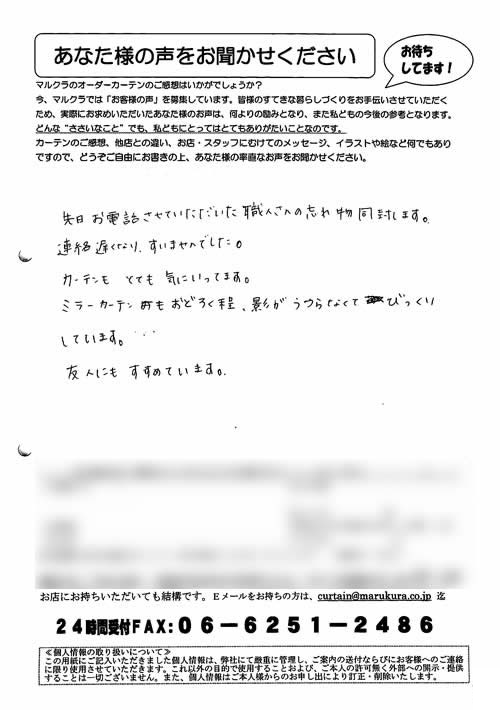 あなた様の声をお聞かせください
お待ち
してます!
マルクラのオーダーカーテンのご感想はいかがでしょうか?
今、マルクラでは「お客様の声」を募集しています。皆様のすてきな暮らしづくりをお手伝いさせていただく
ため、実際にお求めいただいたあなた様のお声は、何よりの励みとなり、また私どもの今後の参考となります。
どんな“ささいなこと”でも、私どもにとってはとてもありがたいことなのです。
カーテンのご感想、他店との違い、お店・スタッフにむけてのメッセージ、イラストや絵など何でもあり
ですので、どうぞご自由にお書きの上、あなた様の率直なお声をお聞かせください。
先日お電話させていただいた職人さんの忘れ物同封します。
連絡遅くなり、すいませんでした。
カーテンも とても 気にいってます。
ミラーカーテン もおどろく程、影がうつらなくてびっくり
しています。
友人にも すすめています。
お店にお持ちいただいても結構です。Eメールをお持ちの方は、curtain@marukura.co.jp 迄
24時間受付FAX:06-6251-2486
≪個人情報の取り扱いについて≫
この用紙にご記入いただきました個人情報は、弊社にて厳重に管理し、ご案内の送付ならびにお客様へのご連絡
に限り使用させていただきます。これ以外の目的で使用することおよび、ご本人の許可無く外部への開示・提供
することは一切ございません。また、個人情報はご本人様からのお申し出により訂正・削除いたします。